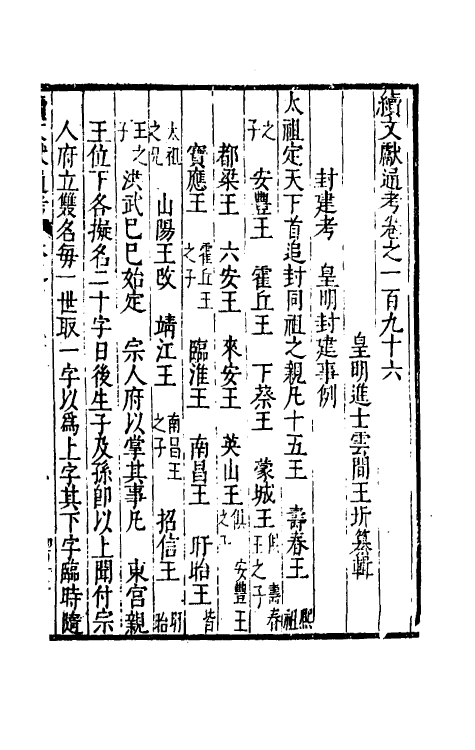 續文獻通考卷之一百九十六
皇明進士雲間王圻纂輯
封建考　皇明封建事例
太祖定天下首追封同祖之親凡十五王　壽春王　熙祖
之子　安豐王　霍丘王　下蔡王　蒙城王　俱壽春王之子
都梁王　六安王　來安王　英山王　俱安豐王之子
寶應王　霍丘王之子　臨淮王　南昌王　盱眙王　皆
太祖之兄　山陽王改　靖江王　南昌王之子　招信王　盱眙
王之子　洪武己巳始定　宗人府以掌其事凡　東宮親
王位下各擬名二十字日後生子及孫卽以上聞付宗
人府立雙名每一世取一字以爲上字其下字臨時隨